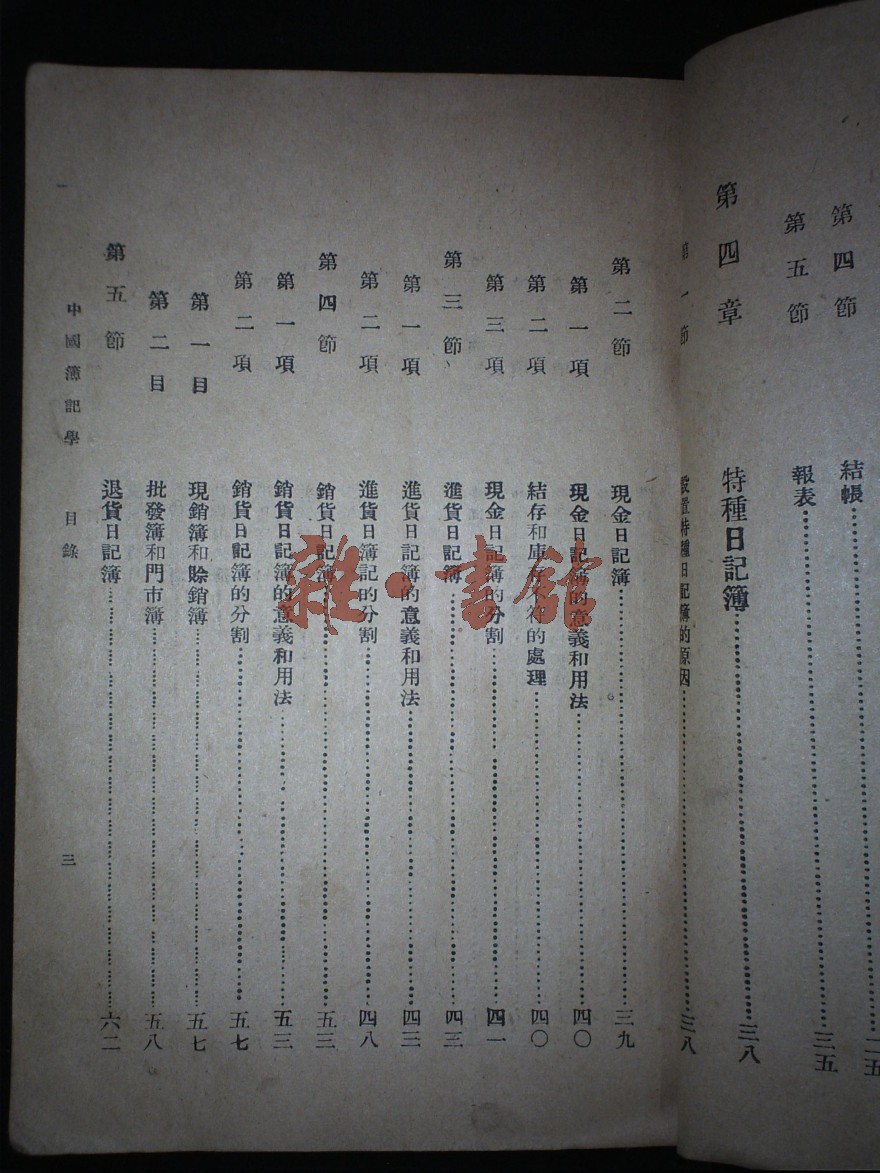 第四節 結帳
第五節 報表 三五
第四章 特種日記簿 三八
第一節 設置特種日記簿的原因 三八
第二節 現金日記簿 三九
第一項 現金日記簿的意義和用法 四〇
第二項 結存和庫存不符的處理 四〇
第三項 現金日記簿的分割 四一
第三節 進貨日記簿 四三
第一項 進貨日記簿的意義和用法 四三
第二項 進貨日簿記的分割 四八
第四節 銷貨日記簿 五三
第一項 銷貨日記簿的意義和用法 五三
第二項 銷貨日記簿的分割 五七
第一目 現銷簿和賒銷簿 五七
第二目 批發簿和門市簿 五八
第五節 退貨日記簿 六二
中國簿記學 目錄 三
雜·書館